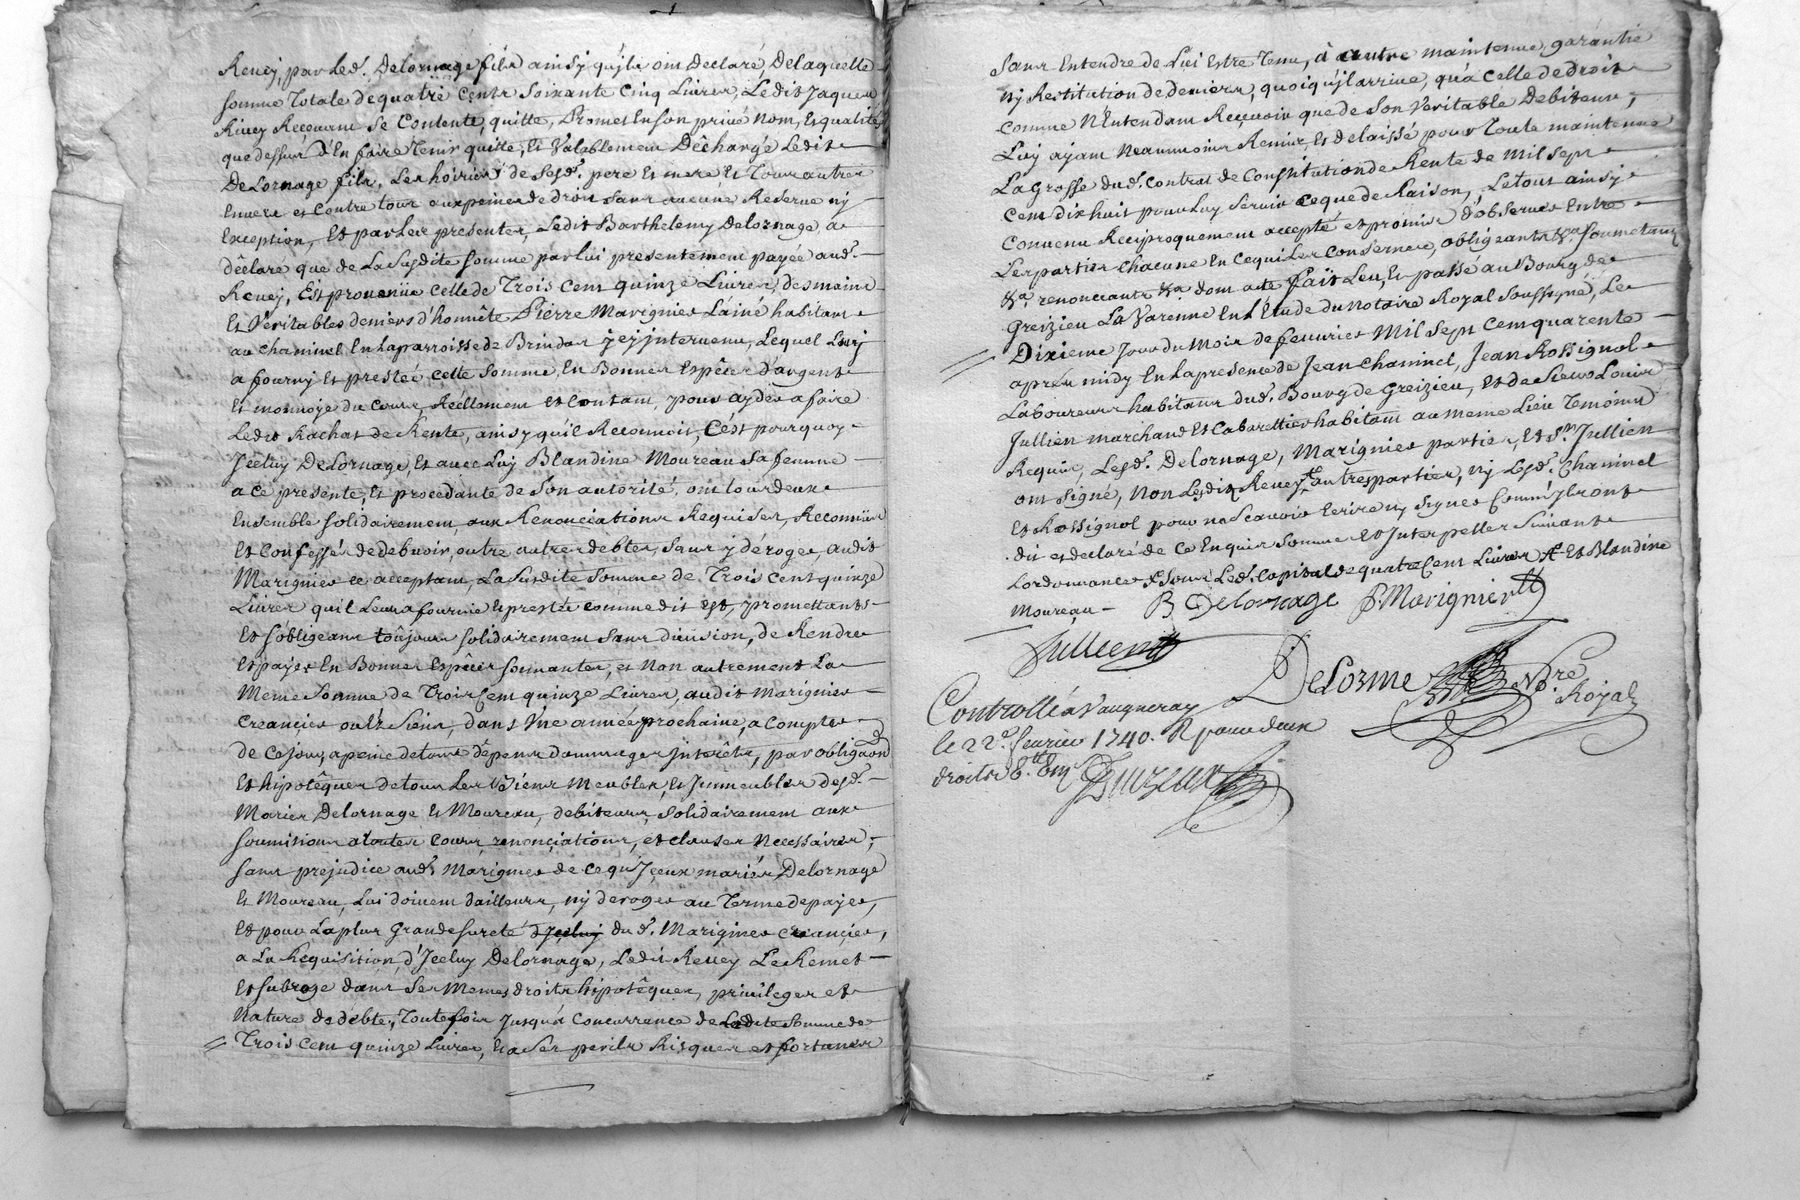 Revey, par led. Delornage fils ainsy qu'ils ont declaré, De laquelle
somme Totale de quatre Cents Soixante Cinq Livres, Ledit Jaques
Revey Reçevant Se Contente, quitte, Promet En son privé Nom, Et qualités
que dessus d'En faire Tenir quitte, Et Valablement Déchargé Ledit
DeLornage fils, Les hoiries de Sesd. pere Et mere Et Tous autres
Envers et Contre tous aux peines de droit Sans aucune Reserve ny
Exception, Et par Les presentes, Ledit Barthelemy Delornage a
déclaré que de La Susdite Somme par lui presentement payée aud.
Revey, Est provenüe Celle de Trois Cent quinze Livres, des mains
Et Veritables deniers d'honnête Pierre Marignier Lainé habitant
au Chaninel En La parroisse de Brindas jcy intervenu, Lequel Luy
a fourny Et prestée cette Somme, En Bonnes Espêces d'argent
Et monnoye du Cours, Réellement et Contant, pour ayder a faire
Ledit Rachat de Rente, ainsy qu'il Reconnoit, C'est pourquoy
Jceluy DeLornage, Et avec Luy Blandine Moureau Sa femme
a ce presente, Et procedante de Son autorité, ont tous deux
Ensemble Solidairement, aux Renonciations Requises, Reconnu
Et Confessé de debvoir, outre autres debtes, Sans y déroger, audit
Marignier ce acceptant, La Susdite Somme de Trois Cent quinze
Livres qu'il Leur a fournie Et prestée comme dit Est, promettants
Et s'obligeant toûjours Solidairement Sans division, de Rendre
Et payer En Bonnes Espêces Sonnantes, et Non autrement La
Meme Somme de Trois Cent quinze Livres, audit Marignier
Creancier ou Es Siens, dans Vne année prochaine, a Compter
de Ce jour, a peine de tous dépens dommages jnterêts, par obligaon
Et hipotêques de tous Les Biens Meubles, Et Jmmeubles desd.
Mariés Delornage Et Moureau, debiteurs, Solidairement aux
Soumitions a toutes Cours, renonciations, et clauses Necessaires,
Sans prejudice aud. Marignier de Ce qu'Jceux mariés Delornage
Et Moureau, Lui doivent d'ailleurs, ny deroger au Terme de payer,
Et pour La plus Grande sureté d'Jceluy dud. Marignier Creancier,
a La Requisition d'Jceluy Delornage, Ledit Revey Le Remet
Et Subroge dans Ses Memes droits hipotêques, privileges et
Nature de débte, Toute fois jusqu'a Concurrence de Ladite Somme de
Trois Cent quinze Livres, Et a Ses perils Risques et fortunes
Sans Entendre de Lui Estre Tenu, à autre maintenue, garantie
ny Restitution de deniers, quoiqu'il arrive, qu'a Celle de droit
comme N'Entendant Reçevoir que de Son Veritable Debiteur,
Luy ayant Neanmoins Remis, Et delaissé pour Toute maintenue
La Grosse dud. Contrat de Constitution de Rente de Mil Sept
Cent Dixhuit pour luy Servir ce que de Raison, Le tout ainsy
Convenu Reciproquement accepté et promis d'observer Entre
Les parties Chacune En Ce qui Les Conserne, obligeants &a. Soumettants
&a. renonceants &a dont acte Fait Leu, Et passé au Bourg de
Greizieu La Varenne En L'Etude du Notaire Royal Soussigné, Le
Dixieme Jour du Mois de fevrier Mil Sept Cent quarente
apres midy En La presence de Jean Chaninel, Jean Rossignol
Laboureurs habitans dud. Bourg de Greizieu, Et de Sieur Louis
Jullien marchand Et Cabarettier habitant au Meme Lieu Temoins
Requis, Lesd. Delornage, Marignier partie, Et Sr. Jullien
ont Signé, Non Lesdits Revey & autres parties, ny Lesd. Chaninel
Et Rossignol pour ne Scavoir Ecrire ny Signer Comm'ils ont
dit et declaré de Ce Enquis Sommé Et Interpellés Suivant
Lordonnance & Sous Led. Capital de quatre Cent Livres & Et Blandine
Moureau
B Delornage P. Marignier
Jullien
Delorme Nore
Royal
Controllé a Vaugneray
le 22e. fevrier 1740. R pour deux
droits